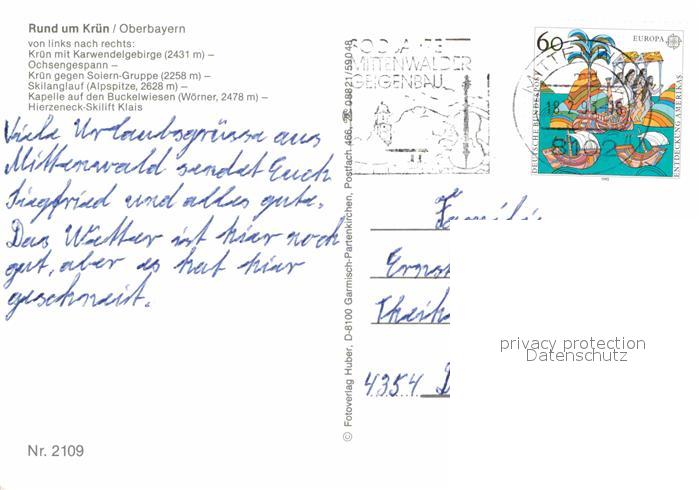 Rund um Krün / Oberbayern
von links nach rechts:
Krün mit Karwendelgebirge (2431 m) –
Ochsengespann –
Krün gegen Soiern-Gruppe (2258 m) –
Skilanglauf (Alpspitze, 2628 m) –
Kapelle auf den Buckelwiesen (Wörner, 2478 m) –
Hierzeneck-Skilift Klais
Viele Urlaubsgrüsse aus
Mittenwald sendet Euch
Siegfried und alles gute.
Das Wetter ist hier noch
gut, aber es hat hier
geschneit.
Nr. 2109
© Fotoverlag Huber, D-8100 Garmisch-Partenkirchen, Postfach 466, ☎ 08821/59048
MITTENWALDER
GEIGENBAU
60
EUROPA
DEUTSCHE BUNDESPOST
ENTDECKUNG AMERIKAS
1992
8102
Familie
Ernst
4354 D
privacy protection
Datenschutz